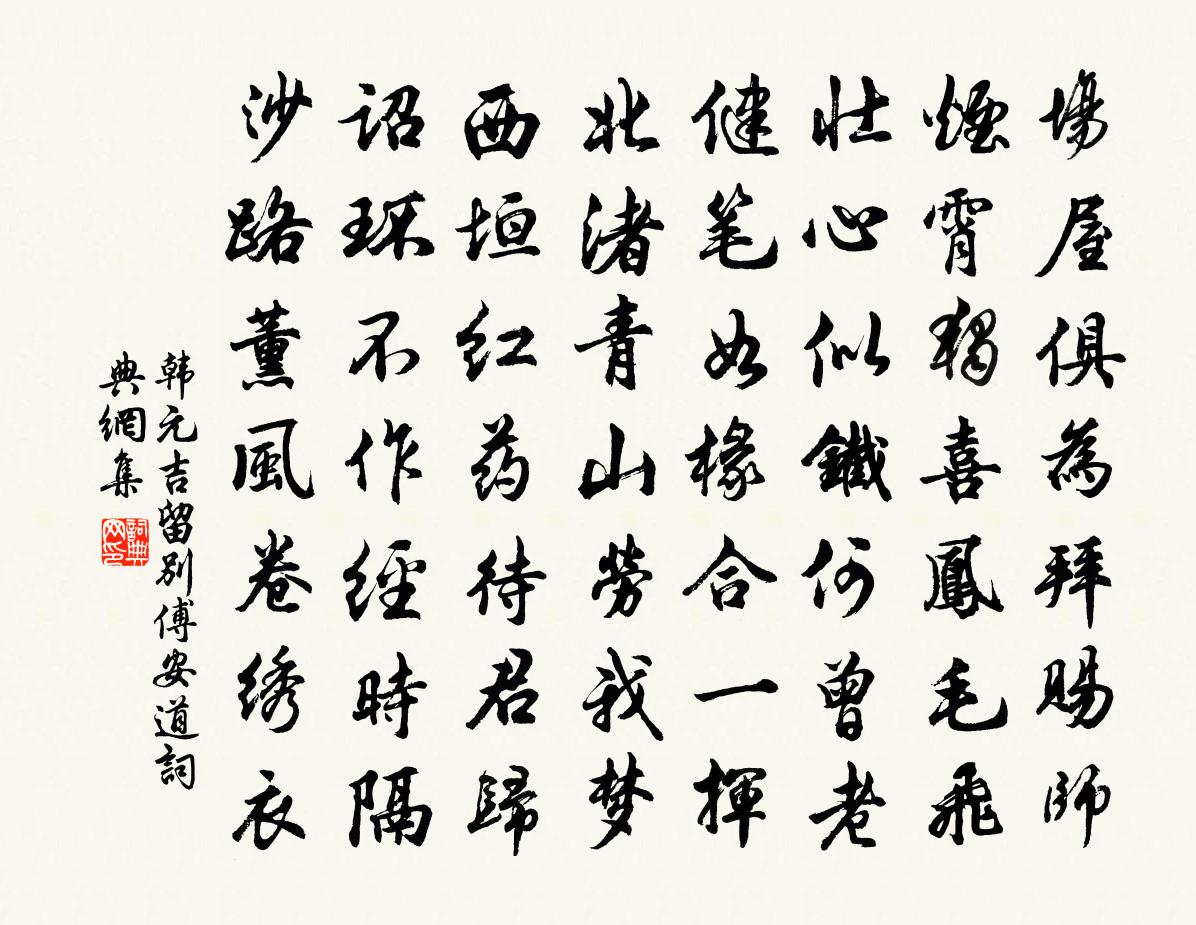 場屋俱為拜賜師
煙霄獨喜鳳毛飛
壮心似鐵何曾老
健笔如椽合一揮
北渚青山勞我梦
西垣红药待君歸
詔环不作經時隔
沙路薰風卷绣衣
韩元吉留别傅安道詞
典網集
詞典网印